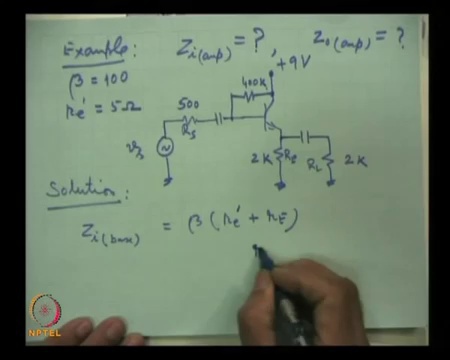 Example: Zi(amp) = ?, Zo(amp) = ?
β = 100
re' = 5Ω
+9V
400K
500
Rs
vs
2K RE
RL 2K
Solution:
Zi(base) = β (re' + rE)
NPTEL